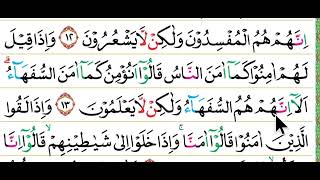 اِنَّهُمْ هُمُ الْمُفْسِدُوْنَ وَلٰكِنْ لَّا يَشْعُرُوْنَ ١٢ وَاِذَا قِيْلَ
لَهُمْ اٰمِنُوْا كَمَآ اٰمَنَ النَّاسُ قَالُوْٓا اَنُؤْمِنُ كَمَآ اٰمَنَ السُّفَهَاۤءُ ۗ
اَلَآ اِنَّهُمْ هُمُ السُّفَهَاۤءُ وَلٰكِنْ لَّا يَعْلَمُوْنَ ١٣ وَاِذَا لَقُوا
الَّذِيْنَ اٰمَنُوْا قَالُوْٓا اٰمَنَّا ۚ وَاِذَا خَلَوْا اِلٰى شَيٰطِيْنِهِمْ ۙ قَالُوْٓا اِنَّا